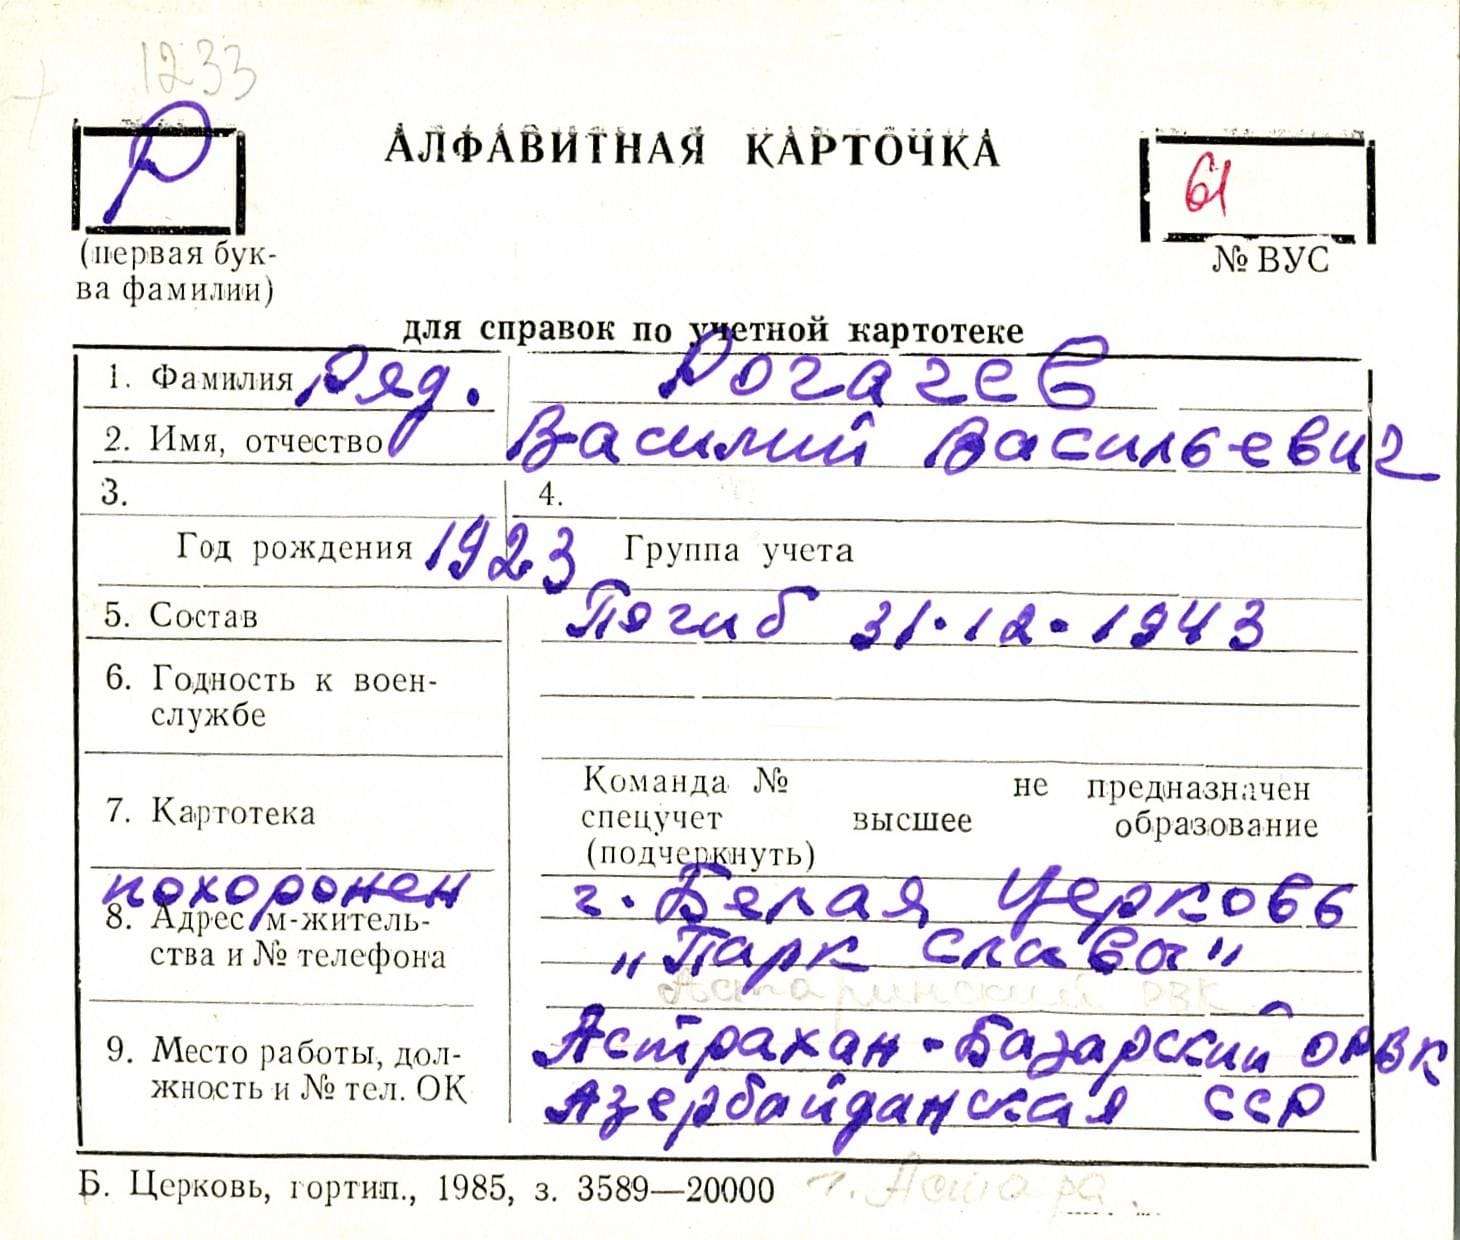 1233
Р АЛФАВИТНАЯ КАРТОЧКА 61
(первая бук-
ва фамилии)
№ ВУС
для справок по учетной картотеке
1. Фамилия Ряд. Рогачев
2. Имя, отчество Василий Васильевич
3. 4.
Год рождения 1923 Группа учета
5. Состав Погиб 31.12.1943
6. Годность к воен-
службе
Команда № не предназначен
7. Картотека спецучет высшее образование
(подчеркнуть)
похоронен г. Белая Церковь
8. Адрес м-житель-
ства и № телефона „Парк славы"
Астаринский РВК
9. Место работы, дол- Астрахан-Базарский ОРВК
жность и № тел. ОК Азербайданская ССР
Б. Церковь, гортип., 1985, з. 3589—20000 г. Астара.